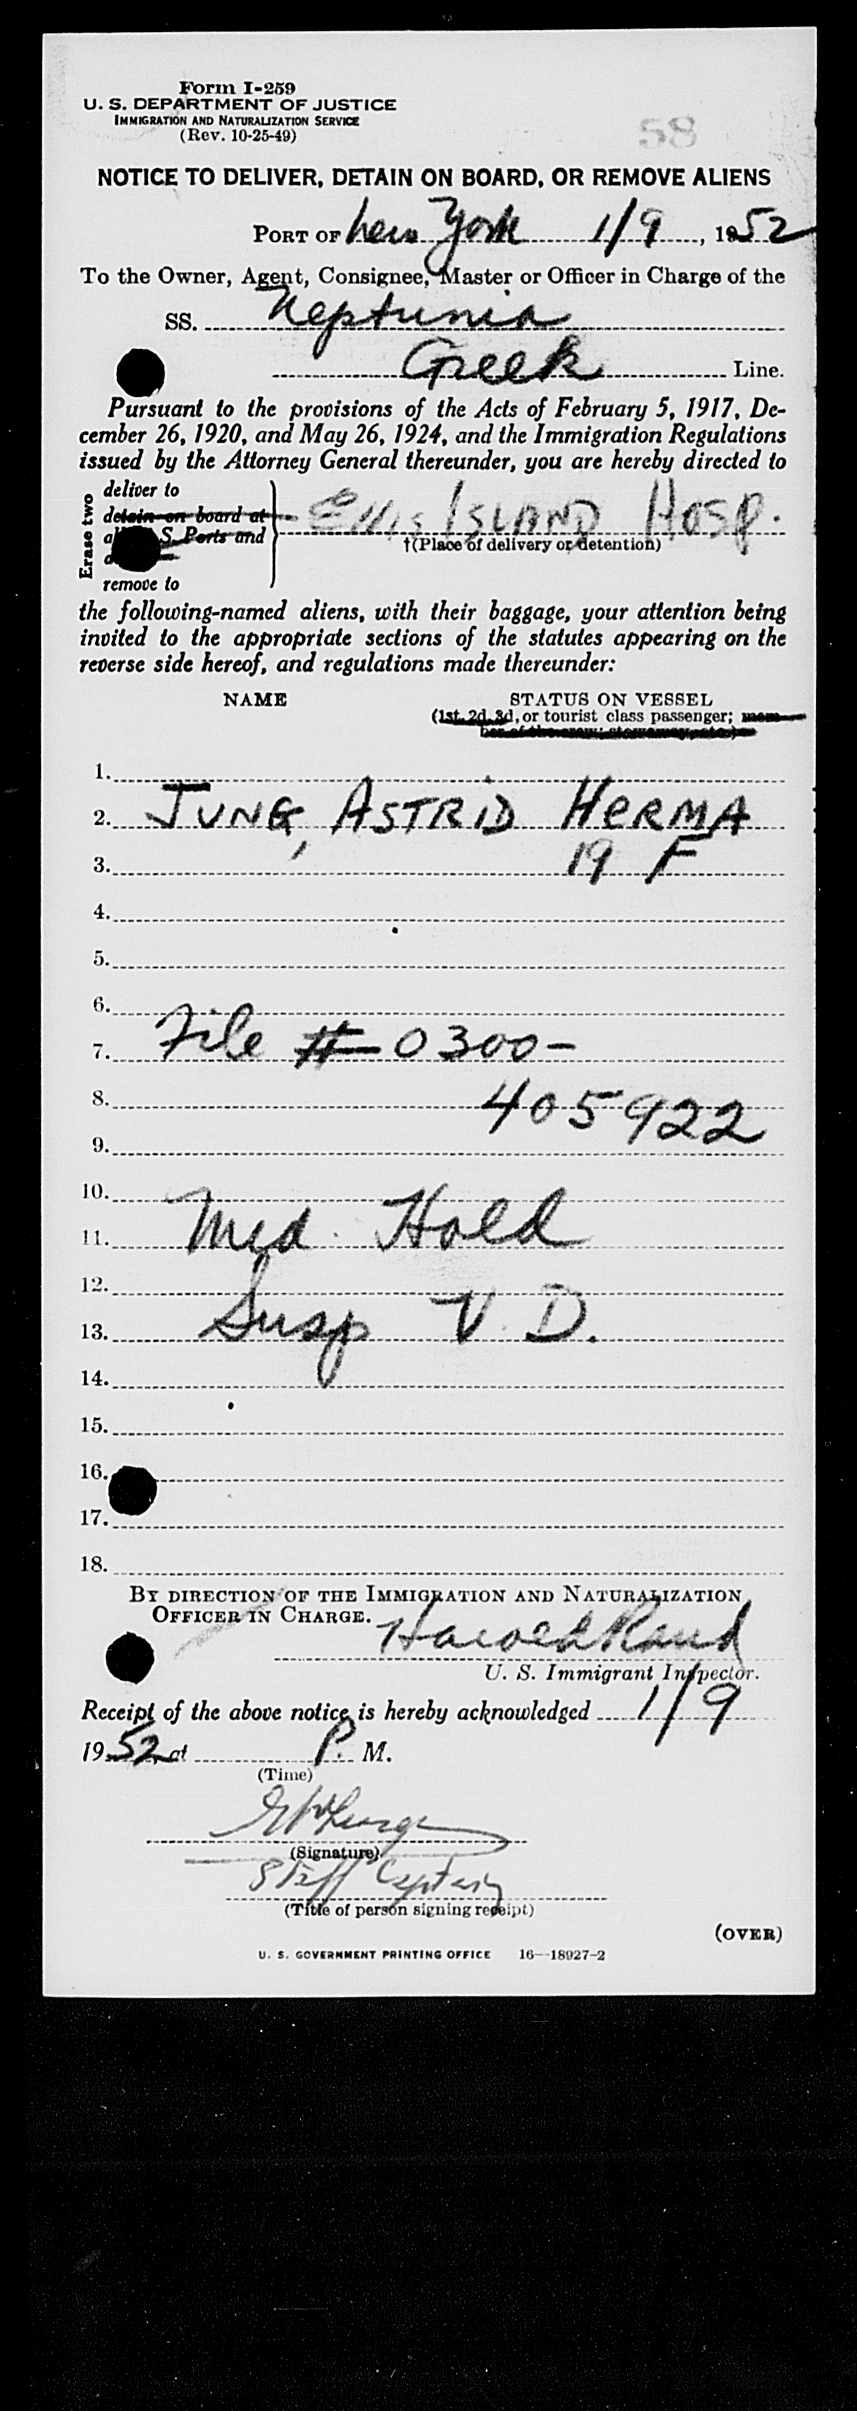 Form I-259
U. S. DEPARTMENT OF JUSTICE
IMMIGRATION AND NATURALIZATION SERVICE
(Rev. 10-25-49)
58
NOTICE TO DELIVER, DETAIN ON BOARD, OR REMOVE ALIENS
PORT OF New York 1/9, 1952
To the Owner, Agent, Consignee, Master or Officer in Charge of the
SS. Neptunia
Greek Line.
Pursuant to the provisions of the Acts of February 5, 1917, De-
cember 26, 1920, and May 26, 1924, and the Immigration Regulations
issued by the Attorney General thereunder, you are hereby directed to
Erase two
deliver to
detain on board at
S. Ports and
remove to
ELLIS ISLAND HOSP.
†(Place of delivery or detention)
the following-named aliens, with their baggage, your attention being
invited to the appropriate sections of the statutes appearing on the
reverse side hereof, and regulations made thereunder:
NAME STATUS ON VESSEL
(1st, 2d, 3d, or tourist class passenger; mem-
ber of the crew; stowaway, etc.)
1.
2. JUNG, ASTRID HERMA
3. 19 F
4.
5.
6.
7. File # 0300-
8. 405922
9.
10.
11. Med. Hold
12.
13. Susp V. D.
14.
15.
16.
17.
18.
BY DIRECTION OF THE IMMIGRATION AND NATURALIZATION
OFFICER IN CHARGE.
Harold Rand
U. S. Immigrant Inspector.
Receipt of the above notice is hereby acknowledged 1/9
1952 at P. M.
(Time)
(Signature)
Staff Captain
(Title of person signing receipt)
(OVER)
U. S. GOVERNMENT PRINTING OFFICE 16—18927-2